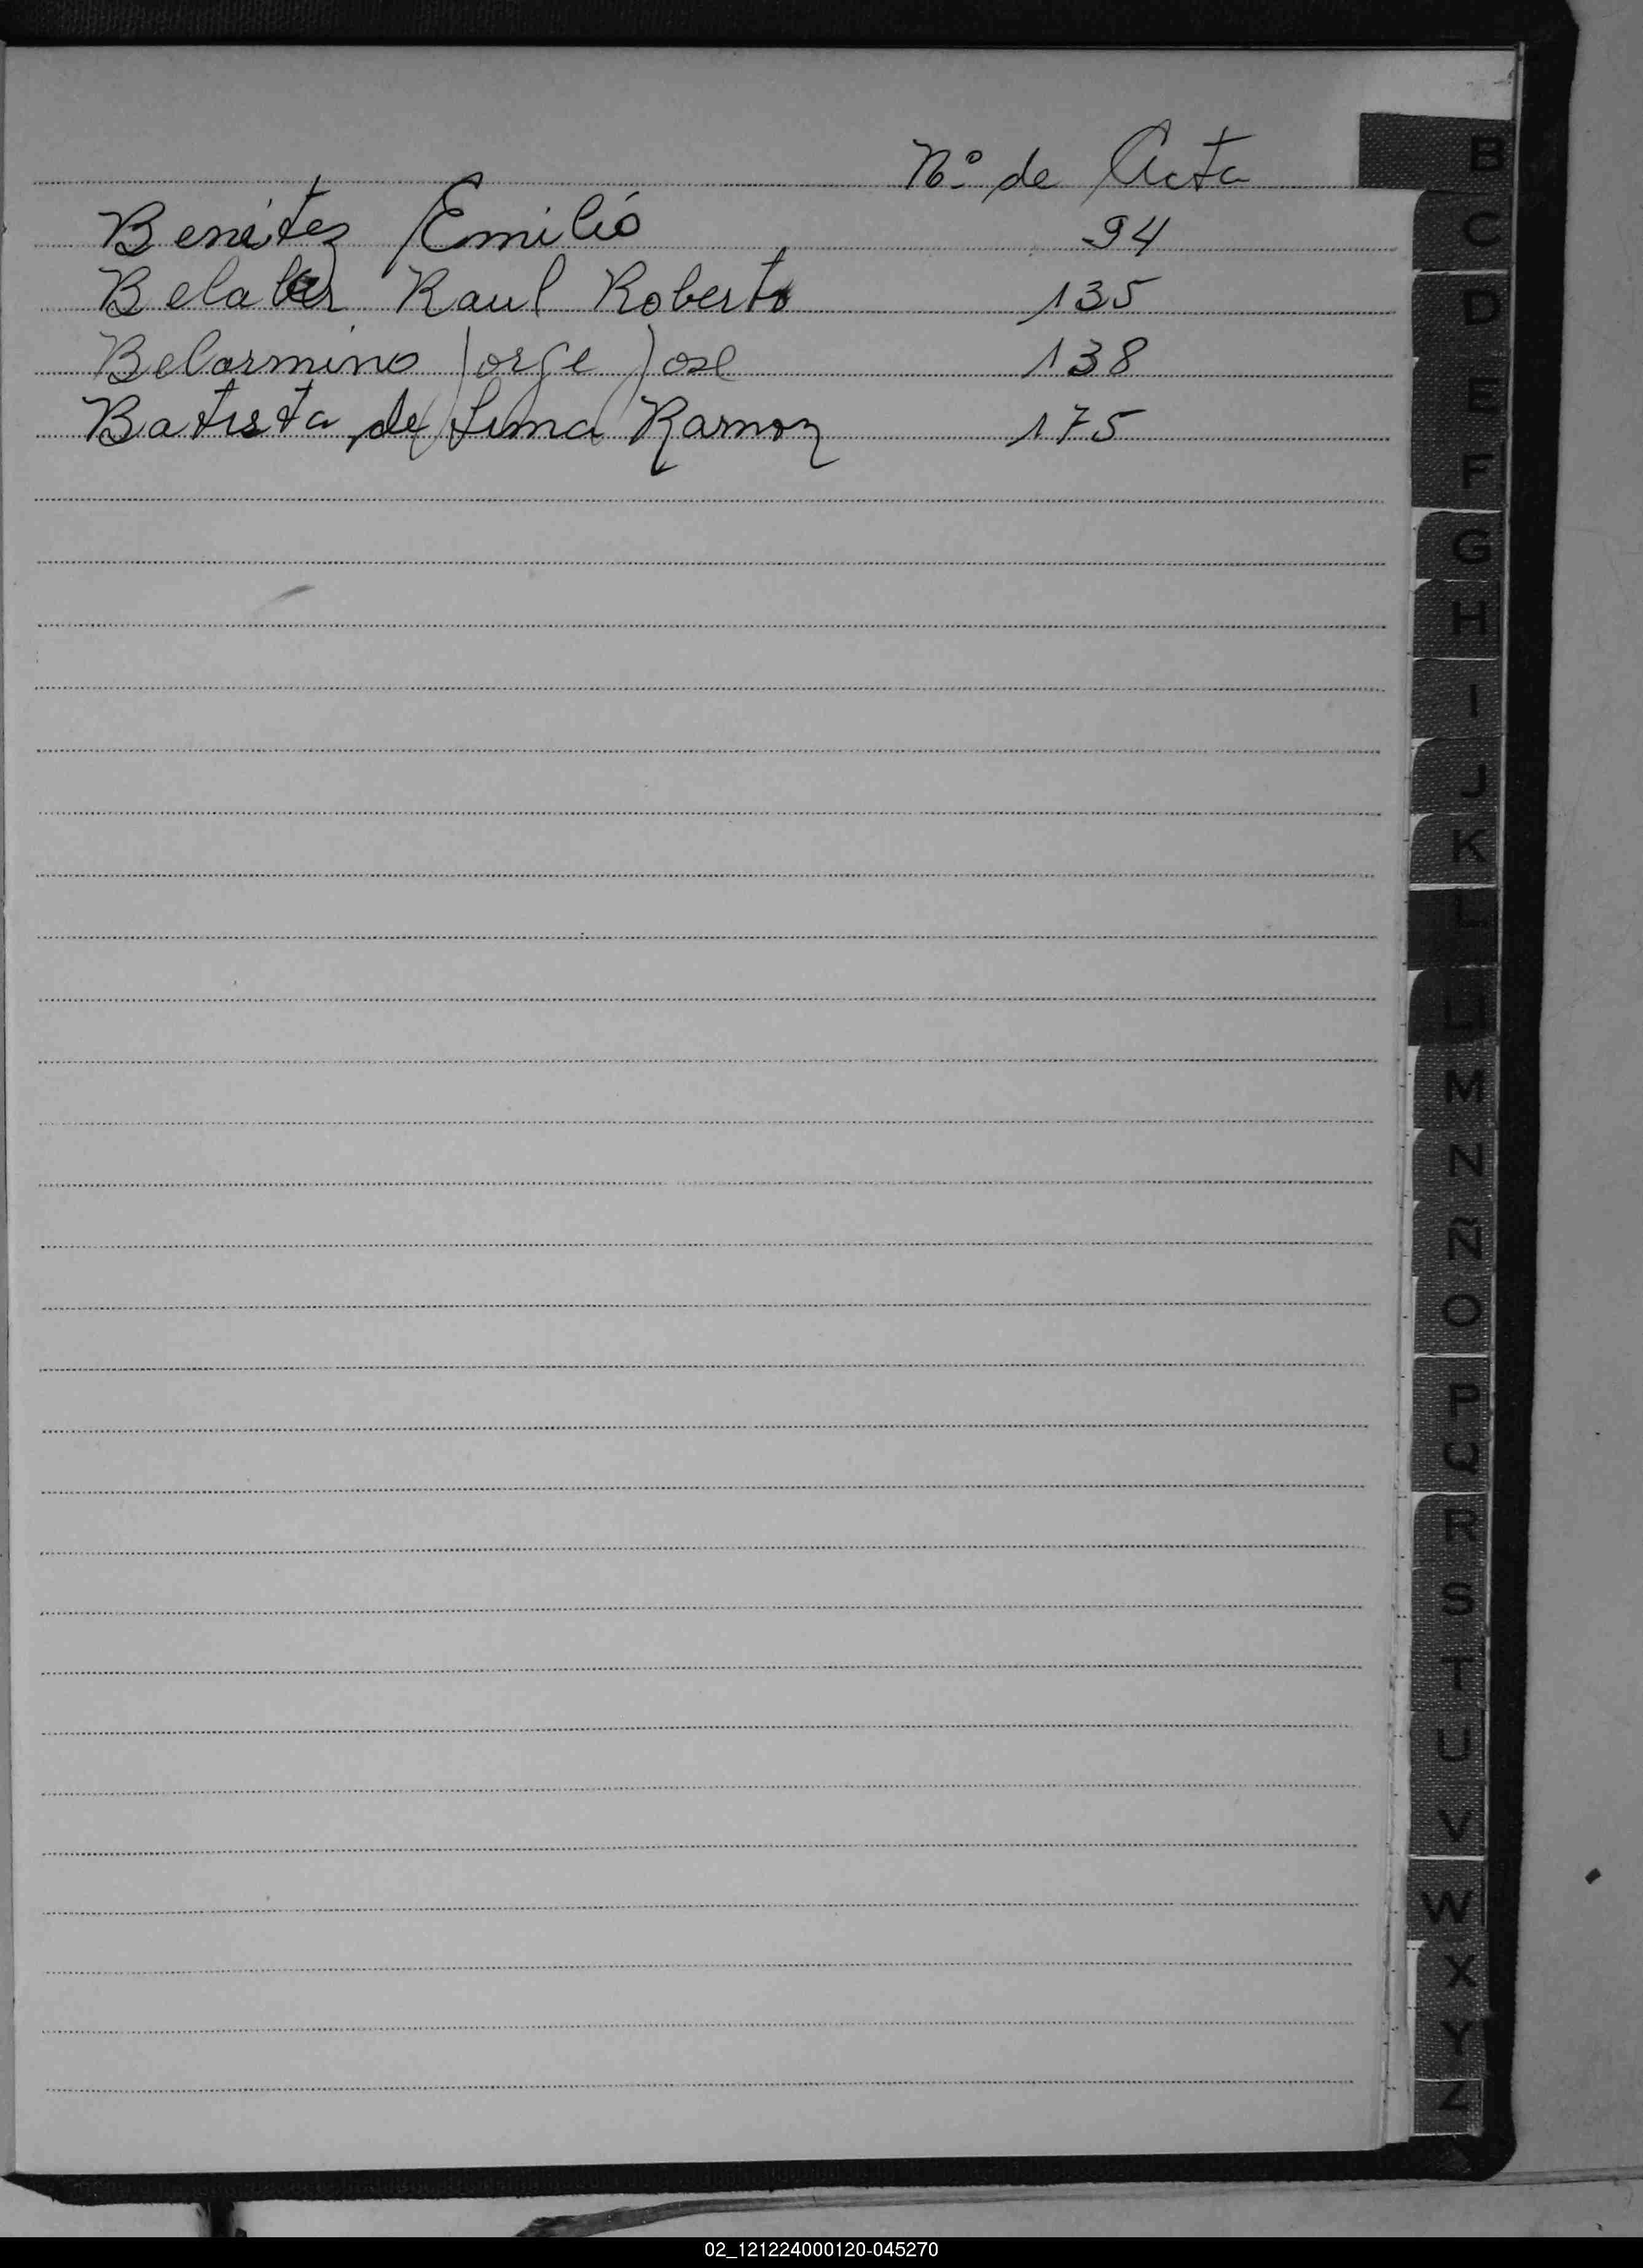 Nº de Acta
Benítez Emilio 94
Raul Roberto 135
Belarmino Jorge Jose 138
Batista de Lima Ramon 175
B
C
D
E
F
G
H
I
J
K
L
LL
M
N
Ñ
O
P
Q
R
S
T
U
V
W
X
Y
Z
02_121224000120-045270